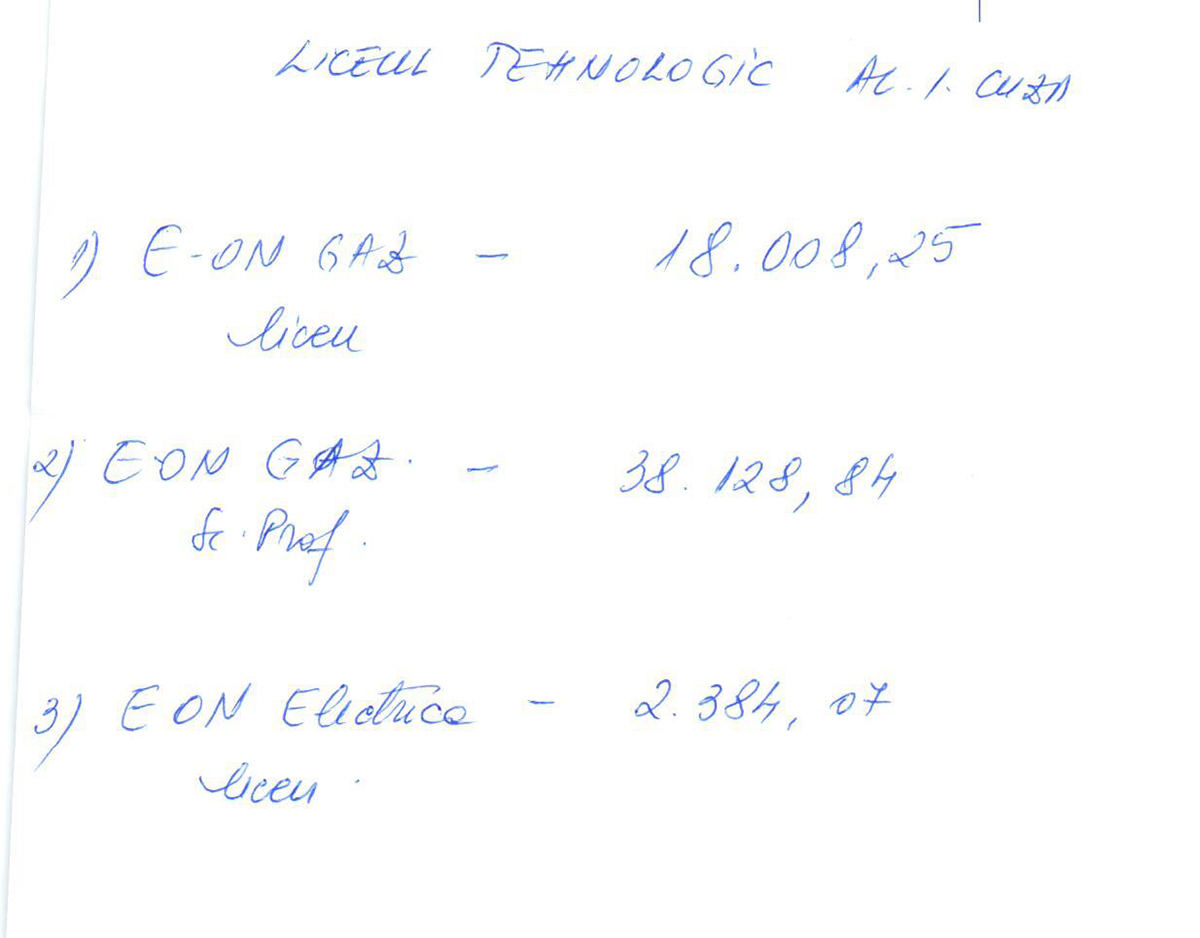 LICEUL TEHNOLOGIC AL. I. CUZA
1) E-ON GAZ - 18.008,25
liceu
2) E-ON GAZ. - 38.128,84
Sc. Prof.
3) E ON Electrica - 2.384,07
liceu.